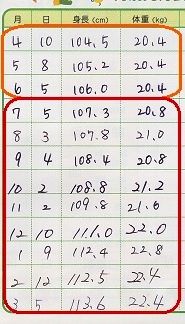 月 日 身長(cm) 体重(kg)
4 10 104.5 20.4
5 8 105.2 20.4
6 5 106.0 20.4
7 5 107.3 20.8
8 3 107.8 21.0
9 4 108.4 20.8
10 2 108.8 21.2
11 2 109.8 21.6
12 10 111.0 22.0
1 9 112.4 22.8
2 12 112.5 22.4
3 5 113.6 22.4